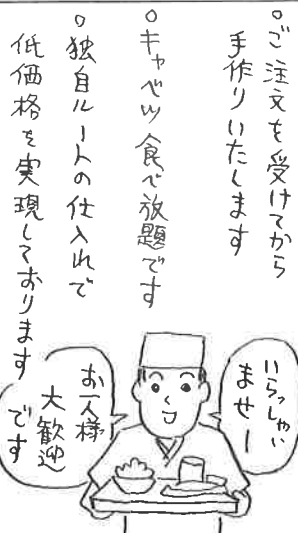 ○ご注文を受けてから
手作りいたします
○キャベツ食べ放題です
○独自ルートの仕入れで
低価格を実現しております
いらっしゃい
ませー
お一人様
大歓迎
です